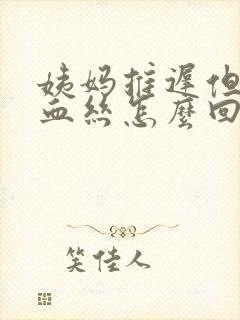 姨妈推遲但
血丝怎麼回
笑佳人